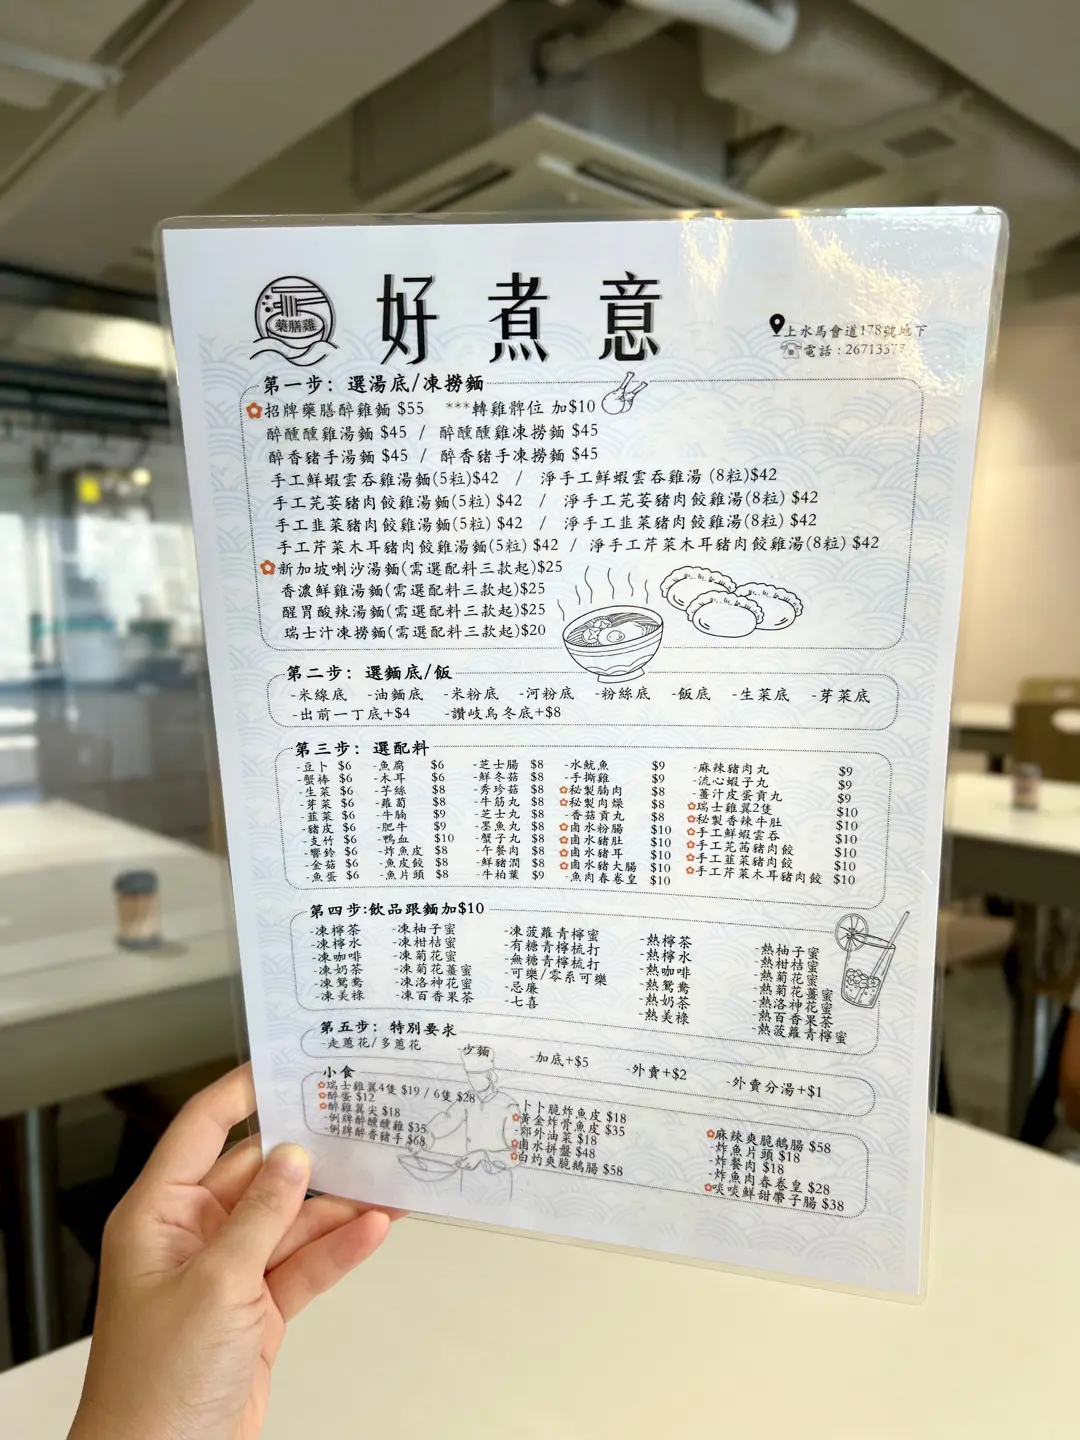 藥膳雞
好煮意
上水馬會道178號地下
電話：2671337
第一步：選湯底/凍撈麵
招牌藥膳醉雞麵 $55 ***轉雞髀位 加$10
醉醺醺雞湯麵 $45 / 醉醺醺雞凍撈麵 $45
醉香豬手湯麵 $45 / 醉香豬手凍撈麵 $45
手工鮮蝦雲吞雞湯麵(5粒)$42 / 淨手工鮮蝦雲吞雞湯 (8粒)$42
手工芫荽豬肉餃雞湯麵(5粒) $42 / 淨手工芫荽豬肉餃雞湯(8粒) $42
手工韭菜豬肉餃雞湯麵(5粒) $42 / 淨手工韭菜豬肉餃雞湯(8粒) $42
手工芹菜木耳豬肉餃雞湯麵(5粒) $42 / 淨手工芹菜木耳豬肉餃雞湯(8粒) $42
新加坡喇沙湯麵(需選配料三款起)$25
香濃鮮雞湯麵(需選配料三款起)$25
醒胃酸辣湯麵(需選配料三款起)$25
瑞士汁凍撈麵(需選配料三款起)$20
第二步：選麵底/飯
-米線底 -油麵底 -米粉底 -河粉底 -粉絲底 -飯底 -生菜底 -芽菜底
-出前一丁底+$4 -讚岐烏冬底+$8
第三步：選配料
-豆卜 $6
-蟹棒 $6
-生菜 $6
-芽菜 $6
-韮菜 $6
-豬皮 $6
-支竹 $6
-響鈴 $6
-金菇 $6
-魚蛋 $6
-魚腐 $6
-木耳 $6
-芋絲 $8
-蘿蔔 $8
-牛腩 $9
-肥牛 $9
-鴨血 $10
-炸魚皮 $8
-魚皮餃 $8
-魚片頭 $8
-芝士腸 $8
-鮮冬菇 $8
-秀珍菇 $8
-牛筋丸 $8
-墨魚丸 $8
-蟹子丸 $8
-午餐肉 $8
-鮮豬潤 $8
-牛柏葉 $9
-水魷魚 $9
-手撕雞 $9
秘製腩肉 $8
秘製肉燥 $8
-香菇貢丸 $8
鹵水粉腸 $10
鹵水豬肚 $10
鹵水豬耳 $10
鹵水豬大腸 $10
-魚肉春卷皇 $10
-麻辣豬肉丸 $9
-流心蝦子丸 $9
-薑汁皮蛋貢丸 $9
瑞士雞翼2隻 $10
秘製香辣牛肚 $10
手工鮮蝦雲吞 $10
手工芫茜豬肉餃 $10
手工韮菜豬肉餃 $10
手工芹菜木耳豬肉餃 $10
第四步:飲品跟麵加$10
-凍檸茶
-凍檸水
-凍咖啡
-凍奶茶
-凍鴛鴦
-凍美祿
-凍柚子蜜
-凍柑桔蜜
-凍菊花蜜
-凍菊花薑蜜
-凍洛神花蜜
-凍百香果茶
-凍菠蘿青檸蜜
-有糖青檸梳打
-無糖青檸梳打
-可樂/零系可樂
-忌廉
-七喜
-熱檸茶
-熱檸水
-熱咖啡
-熱鴛鴦
-熱奶茶
-熱美祿
-熱柚子蜜
-熱柑桔蜜
-熱菊花蜜
-熱菊花薑蜜
-熱洛神花蜜
-熱百香果茶
-熱菠蘿青檸蜜
第五步：特別要求
-走蔥花/多蔥花 -少麵 -加底+$5 -外賣+$2 -外賣分湯+$1
小食
瑞士雞翼4隻 $19 / 6隻 $28
醉蛋 $12
醉雞翼尖 $18
-例牌醉醺醺雞 $35
-例牌醉香豬手 $68
卜卜脆炸魚皮 $18
黃金炸骨魚皮 $35
郊外油菜 $18
鹵水拼盤 $48
白灼爽脆鵝腸 $58
麻辣爽脆鵝腸 $58
-炸魚片頭 $18
-炸餐肉 $18
-炸魚肉春卷皇 $28
啖啖鮮甜帶子腸 $38